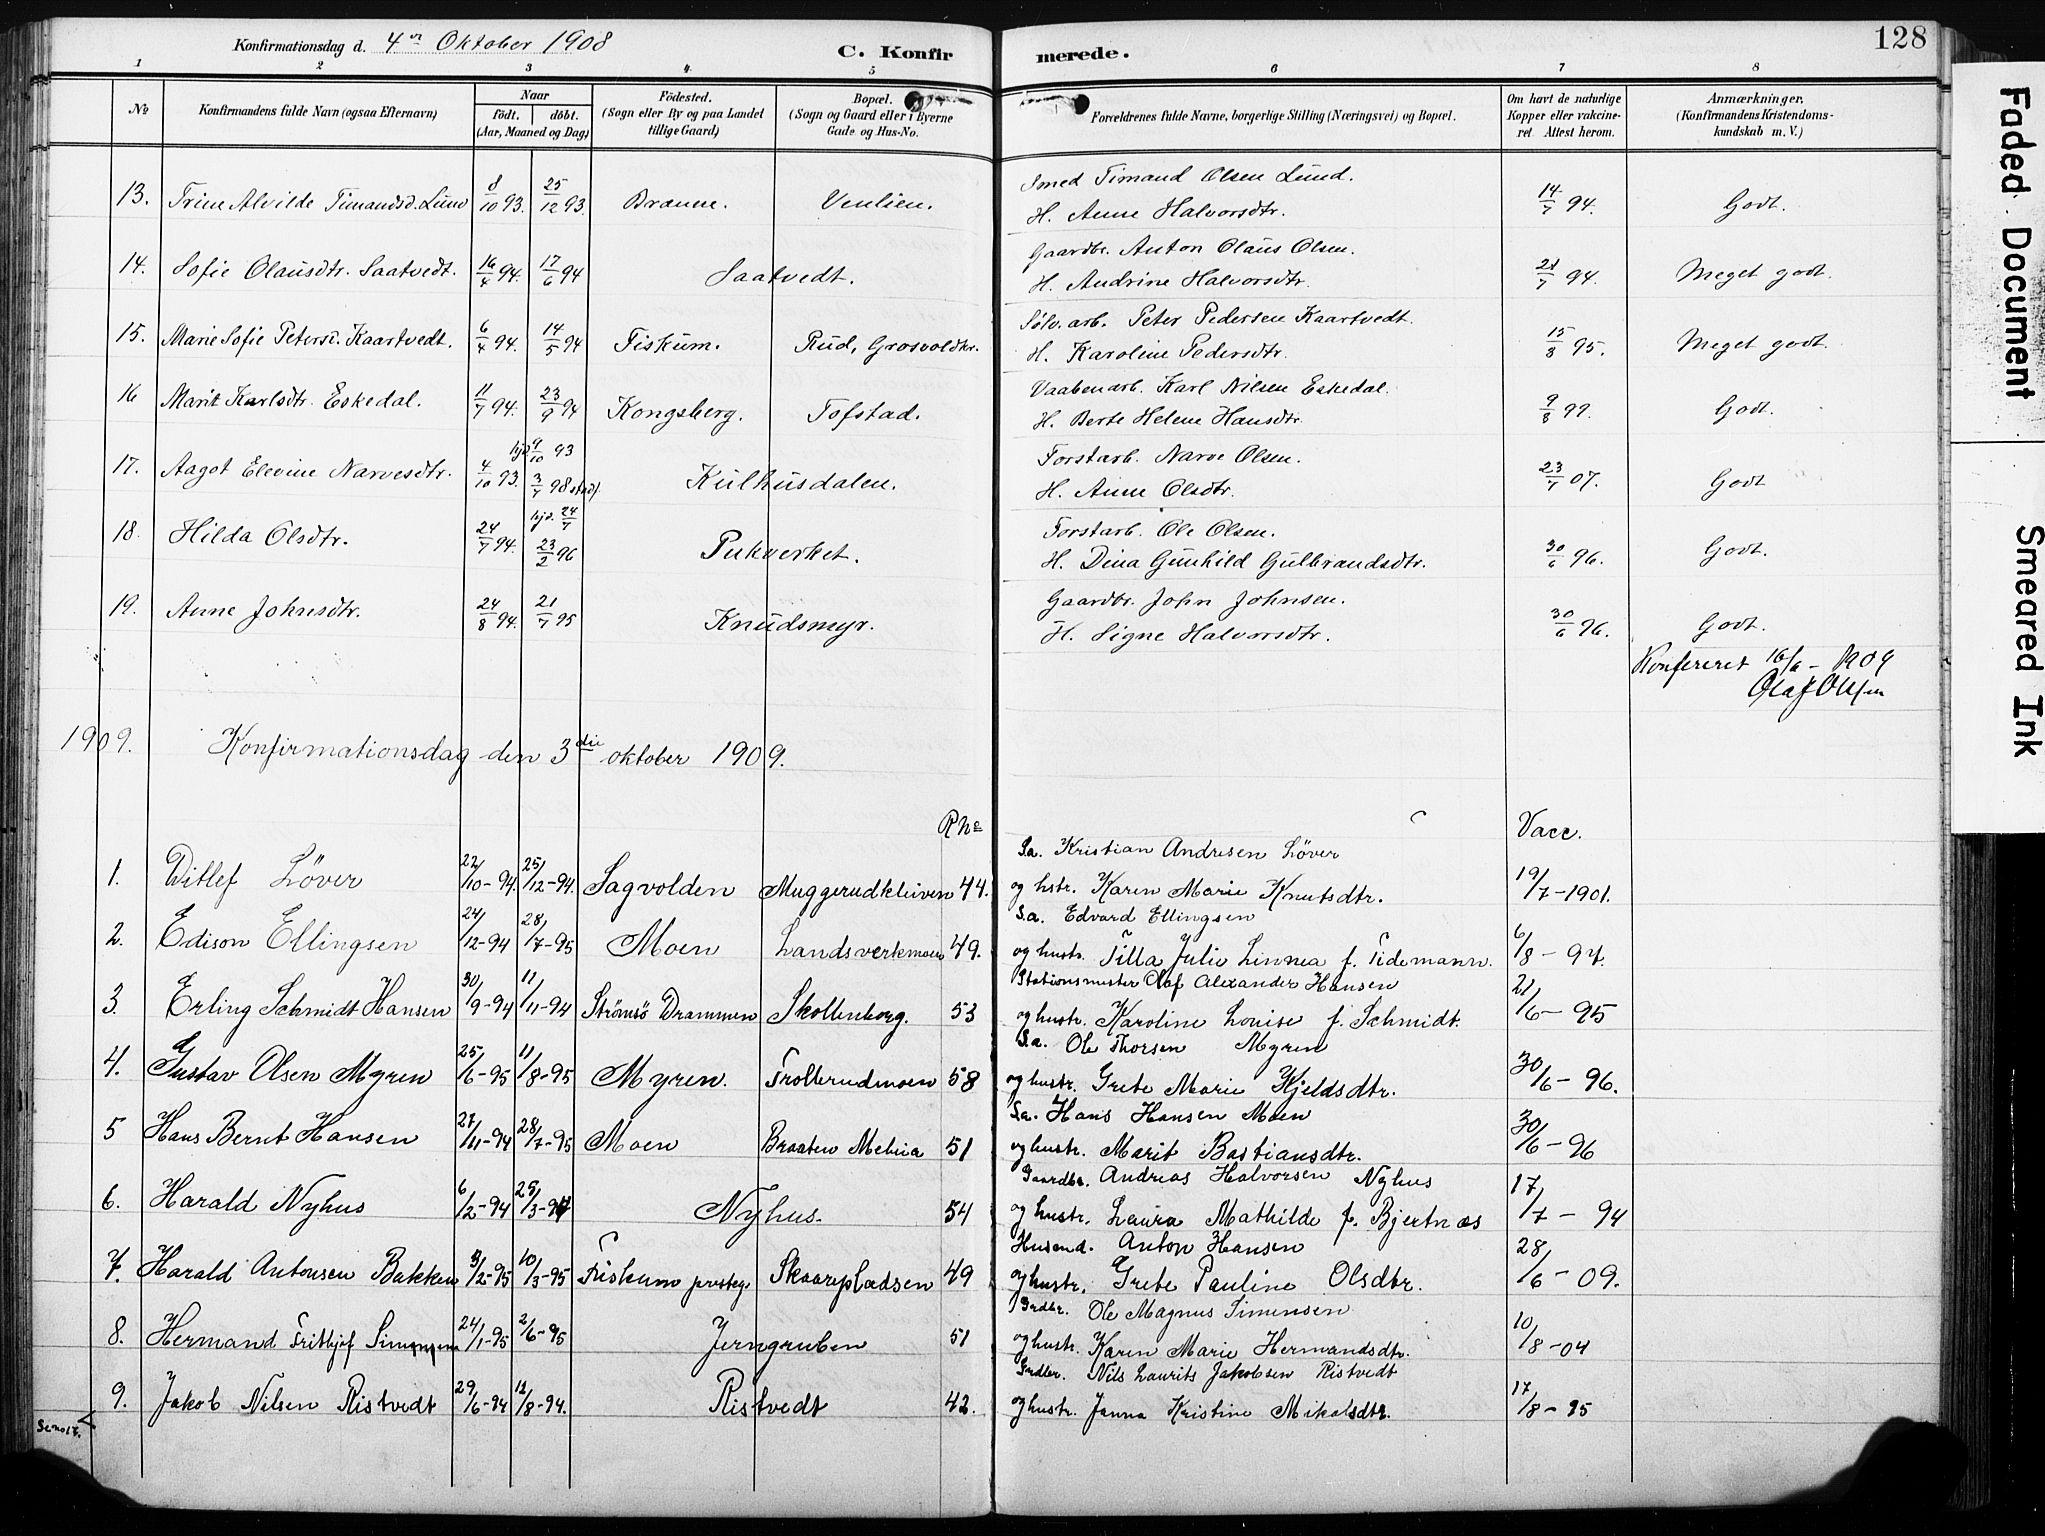 128
Konfirmationsdag d. 4de Oktober 1908 C. Konfirmerede.
1 2 3 4 5 6 7 8
No Konfirmandens fulde Navn (ogsaa Efternavn) Naar født. døbt. (Aar, Maaned og Dag) Fødested. (Sogn eller By og paa Landet tillige Gaard) Bopæl. (Sogn og Gaard eller i Byerne Gade og Hus-No. Forældrenes fulde Navne, borgerlige Stilling (Næringsvei) og Bopæl. Om havt de naturlige Kopper eller vakcineret Attest herom. Anmærkninger. (Konfirmandens Kristendomskundskab m. V.)
Smed Timand Olsen Lund.
13. Trine Alvilde Timandsd. Lund 8/10 93. 25/12 93. Branne. Venlien. H. Anne Halvorsdtr. 14/7 94. Godt.
Gaardbr. Anton Olaus Olsen.
14. Sofie Olausdtr. Saatvedt. 16/4 94. 17/6 94 Saatvedt. H. Andrine Halvorsdtr. 21/7 94. Meget godt.
Sølv. arb. Peter Pedersen Kaartvedt.
15. Marie Sofie Petersd. Kaartvedt. 6/4 94. 14/5 94 Fiskum. Rud, Grosvoldkr. H. Karoline Pedersdtr. 15/8 95. Meget godt.
Vaabenarb. Karl Nilsen Eskedal.
16 Marit Karlsdtr. Eskedal. 11/7 94. 23/9 94 Kongsberg. Tofstad. H. Berte Helene Hansdtr. 9/8 99. Godt.
hjd 9/10 93 Forstarb. Narve Olsen.
17. Aagot Elevine Narvesdtr. 4/10 93. 3/7 98 stadf. Kulhusdalen. H. Anne Olsdtr. 23/7 07. Godt
hjd. 24/7 Forstarb. Ole Olsen.
18. Hilda Olsdtr. 24/7 94. 23/2 96 Pukverket. H. Dina Gunhild Gulbrandsdtr. 30/6 96. Godt.
Gaardbr. John Johnsen.
19. Anne Johnsdtr. 24/8 94. 21/7 95 Knudsmyr. H. Signe Halvorsdtr. 30/6 96. Godt.
Konfereret 16/6 - 1909
Olaf Olsen
1909. Konfirmationsdag den 3die oktober 1909.
R No Vacc.
Sa. Kristian Andresen Løver
1. Ditlef Løver 22/10-94. 25/12-94. Sagvolden Muggerudkleiven 44. og hstr. Karen Marie Knutsdtr. 19/7-1901.
S.a. Edvard Ellingsen
2. Edison Ellingsen 24/12-94 28/7-95 Moen Landsverkmoen 49. og hustr. Tilla Julie Linnea f. Tidemann. 6/8-97.
Stationsmester Olaf Alexander Hansen
3. Erling Schmidt Hansen 30/9-94 11/11-94 Strömsö Drammen Skollenborg. 53 og hustr. Karoline Louise f. Schmidt. 21/6-95
S.a. Ole Thorsen Myren
4. Gustav Olsen Myren 25/6-95 11/8-95 Myren. Trollerudmoen 58 og hustr. Grete Marie Kjeldsdtr. 30/6-96.
S.a. Hans Hansen Moen
5 Hans Bernt Hansen 27/11-94 28/7-95 Moen Braaten Meheia 51 og hustr. Marit Bastiansdtr. 30/6-96
Gaardbr. Andreas Halvorsen Nyhus
6. Harald Nyhus 6/2-94 29/3-94 Nyhus. 54 og hustr. Laura Mathilde f. Bjertnæs 17/7-94
Husend. Anton Hansen
7. Harald Antonsen Bakken 3/2-95 10/3-95 Fiskum prestegj. Skaarepladsen 49 og hustr. Grete Pauline Olsdtr. 28/6-09.
Grdbr. Ole Magnus Simensen
8. Hermand Fritbjof Simensen 24/1-95 2/6-95 Jerngruben 51 og hustr. Karen Marie Hermandsdtr. 10/8-04
Grdbr. Nils Laurits Jakobsen Ristvedt
9. Jakob Nilsen Ristvedt 29/6-94 12/8-94. Ristvedt 42. og hustr. Janna Kristine Mikalsdtr. 17/8-95
Se no 17.
Faded Document
Smeared Ink